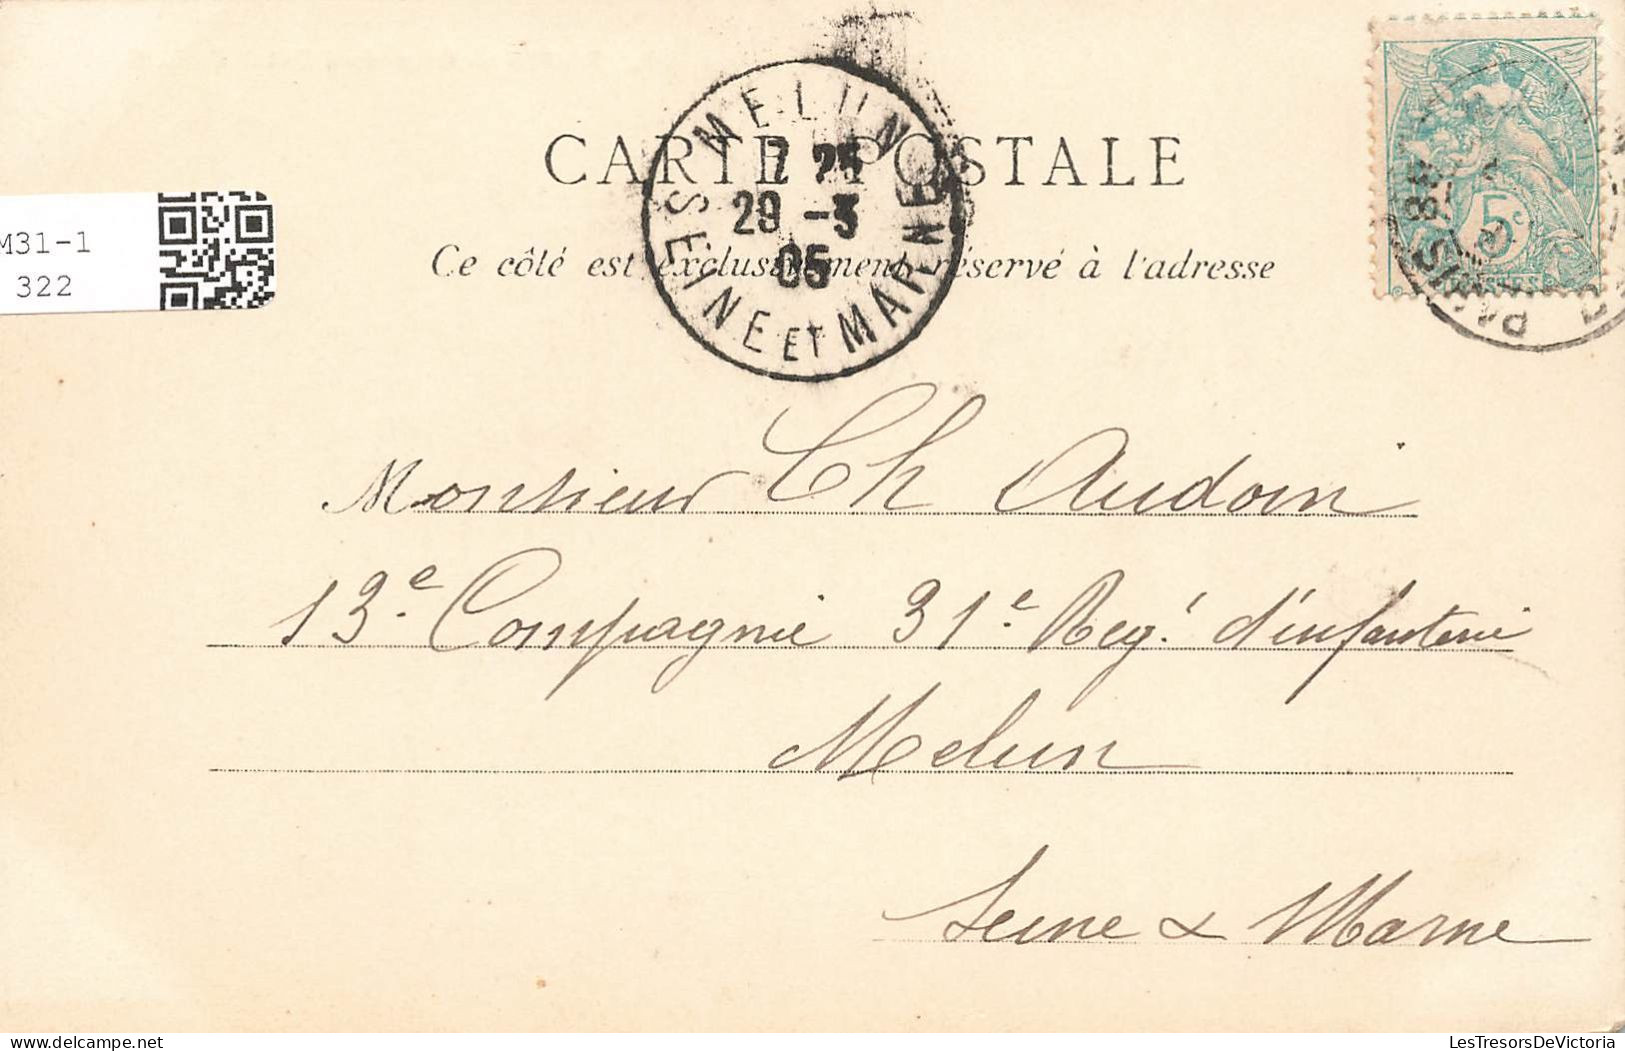 CARTE POSTALE
Ce côté est exclusivement réservé à l'adresse
MELUN
7 25
29 -3
05
SEINE ET MARNE
5c
POSTES
PARIS
M31-1
322
Monsieur Ch Audoin
13e Compagnie 31e Regt d'infanterie
Melun
Seine & Marne
LesTresorsDeVictoria